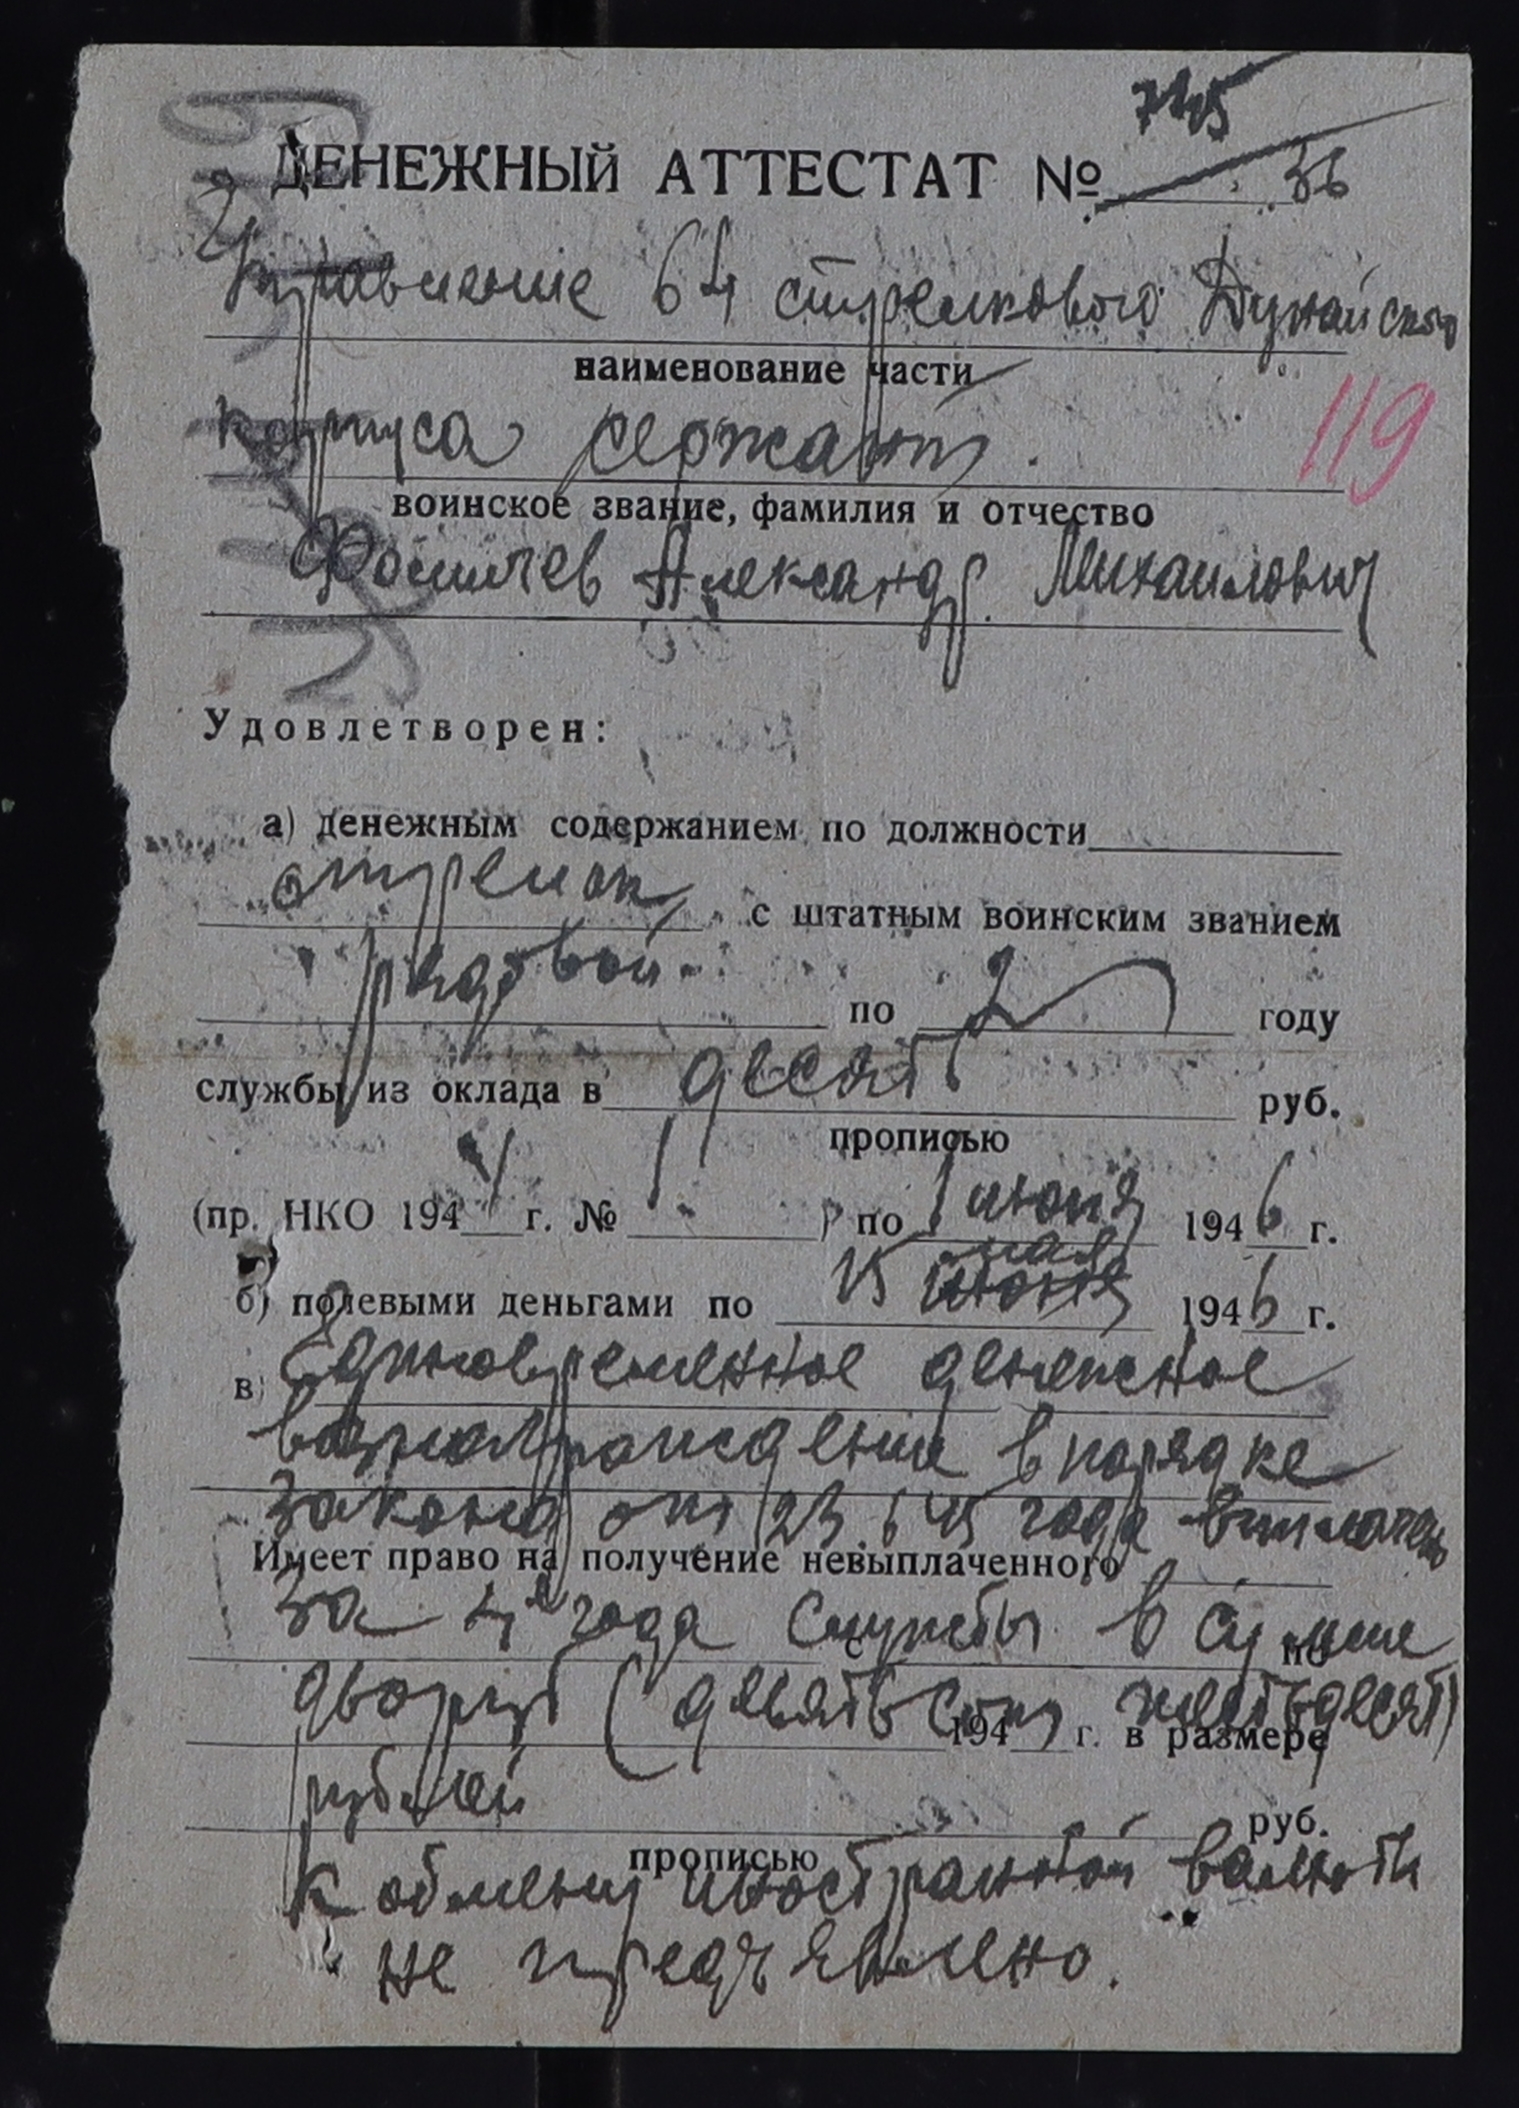 7145
ДЕНЕЖНЫЙ АТТЕСТАТ № 36
Управление 64 стрелкового Дунайского
наименование части
корпуса сержант
119
воинское звание, фамилия и отчество
Фомичев Александр Михайлович
Удовлетворен:
а) денежным содержанием по должности
стрелок с штатным воинским званием
рядовой по 2 году
службы из оклада в десять руб.
прописью
(пр. НКО 194 г. № ) по 1 июня 1946 г.
мая
б) полевыми деньгами по 15 июня 1946 г.
в) Единовременное денежное
вознаграждение в порядке
Закона от 23.6 45 года выплачено
Имеет право на получение невыплаченного
за 4 года службы в сумме
с по
(девятьсот шестьдесят)
194 г. в размере
рублей
руб.
прописью
К обмену иностранной валюты
не предъявлено.